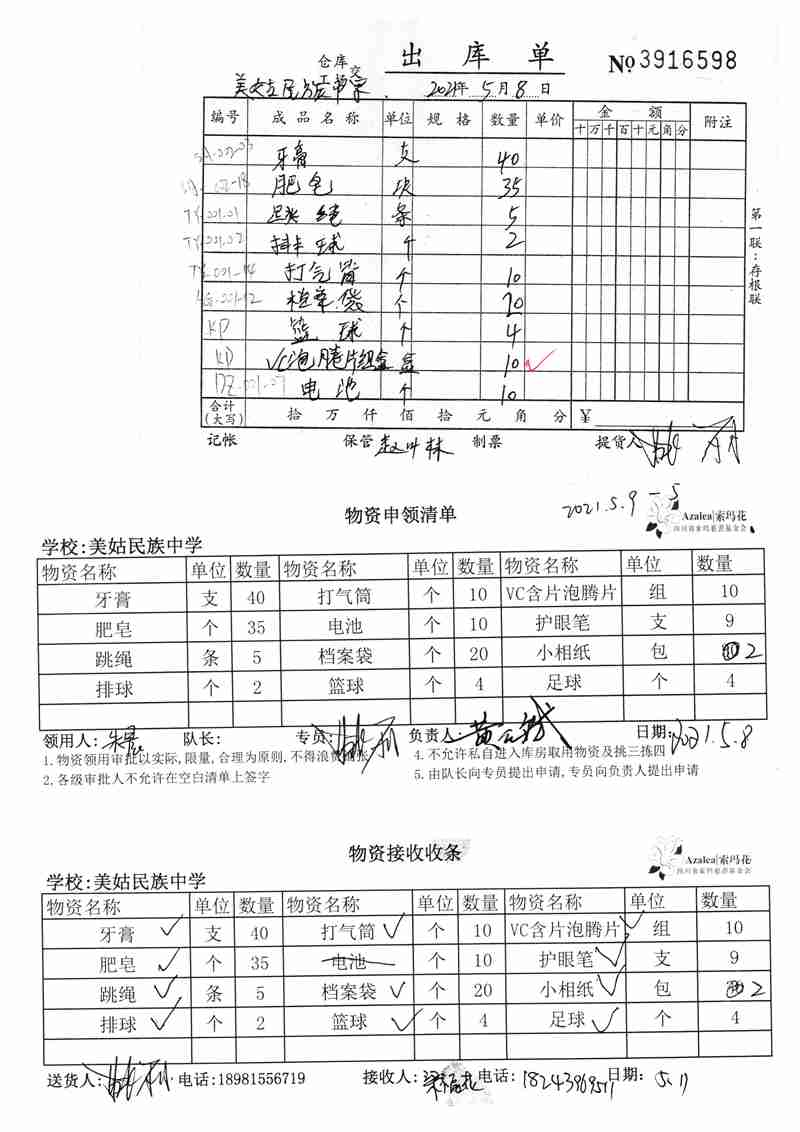 仓库交
出 库 单
№3916598
2021年5月8日
编号 成品名称 单位 规格 数量 单价 金额 附注
十万千百十元角分
牙膏 支 40
肥皂 块 35
TY.001.01 跳绳 条 5
TY.001.02 排球 个 2
打气筒 个 10
档案袋 个 20
KD 篮球 个 4
KD VC泡腾片组盒 盒 10
DZ-001-07 电池 个 10
合计(大写) 拾 万 仟 佰 拾 元 角 分 ¥
第一联:存根联
记帐 保管 赵叶林 制票 提货人
2021.5.9-5
Azalea|索玛花
四川省索玛慈善基金会
物资申领清单
学校:美姑民族中学
物资名称 单位 数量 物资名称 单位 数量 物资名称 单位 数量
牙膏 支 40 打气筒 个 10 VC含片泡腾片 组 10
肥皂 个 35 电池 个 10 护眼笔 支 9
跳绳 条 5 档案袋 个 20 小相纸 包 2
排球 个 2 篮球 个 4 足球 个 4
领用人: 队长: 专员: 负责人: 日期:2021.5.8
1.物资领用审批以实际,限量,合理为原则.不得浪费 4.不允许私自进入库房取用物资及挑三拣四
2.各级审批人不允许在空白清单上签字 5.由队长向专员提出申请,专员向负责人提出申请
Azalea|索玛花
四川省索玛慈善基金会
物资接收收条
学校:美姑民族中学
物资名称 单位 数量 物资名称 单位 数量 物资名称 单位 数量
牙膏 支 40 打气筒 个 10 VC含片泡腾片 组 10
肥皂 个 35 电池 个 10 护眼笔 支 9
跳绳 条 5 档案袋 个 20 小相纸 包 2
排球 个 2 篮球 个 4 足球 个 4
送货人: 电话:18981556719 接收人: 电话: 日期: 5.11